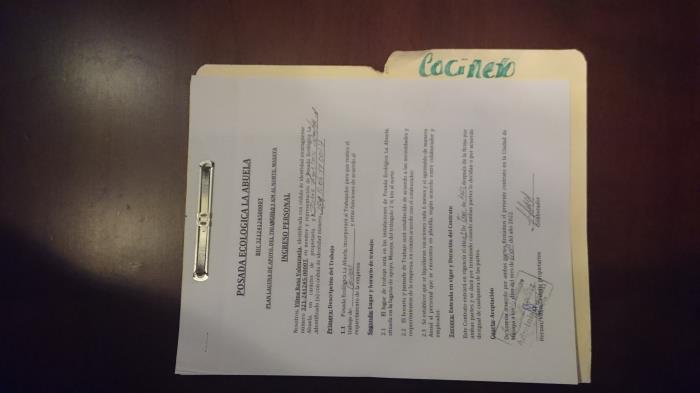 Cocinero
POSADA ECOLOGICA LA ABUELA
RUC
PLAN LAGUNA DE APOYO, DEL TRIANGULO 2 KM AL NORTE, MASAYA
INGRESO PERSONAL
Nosotros, identificada con cédula de identidad nicaragüense
número en nombre y representación de Posada Ecológica La
Abuela, en calidad de propietaria, y
identificado (a) con cédula de identidad número
Primera: Descripción del Trabajo
1.1 Posada Ecológica La Abuela, incorporará al Trabajador para que realice el
trabajo de y otras funciones de acuerdo al
requerimiento de la empresa
Segunda: Lugar y horario de trabajo:
2.1 El lugar de trabajo será en las instalaciones de Posada Ecológica La Abuela,
situada en la laguna de apoyo, Masaya del triangulo 2 ½ km al norte
2.2 El horario y jornada de Trabajo será establecido de acuerdo a las necesidades y
requerimientos de la empresa, en común acuerdo con el colaborador.
2.3 Se establece que se liquidaran vacaciones cada 6 meses y el aguinaldo de manera
Anual al personal que se encuentra en planilla, según acuerdo entre colaborador y
empleador.
Tercera: Entrada en vigor y Duración del Contrato
Este Contrato entrará en vigencia el después de la firma por
ambas partes y se dará por terminado cuando ambas partes lo decidan o por acuerdo
desigual de cualquiera de las partes.
Cuarta: Aceptación
De común acuerdo por ambas partes, firmamos el presente contrato en la Ciudad de
Masaya a los días del mes de del año
Colaborador